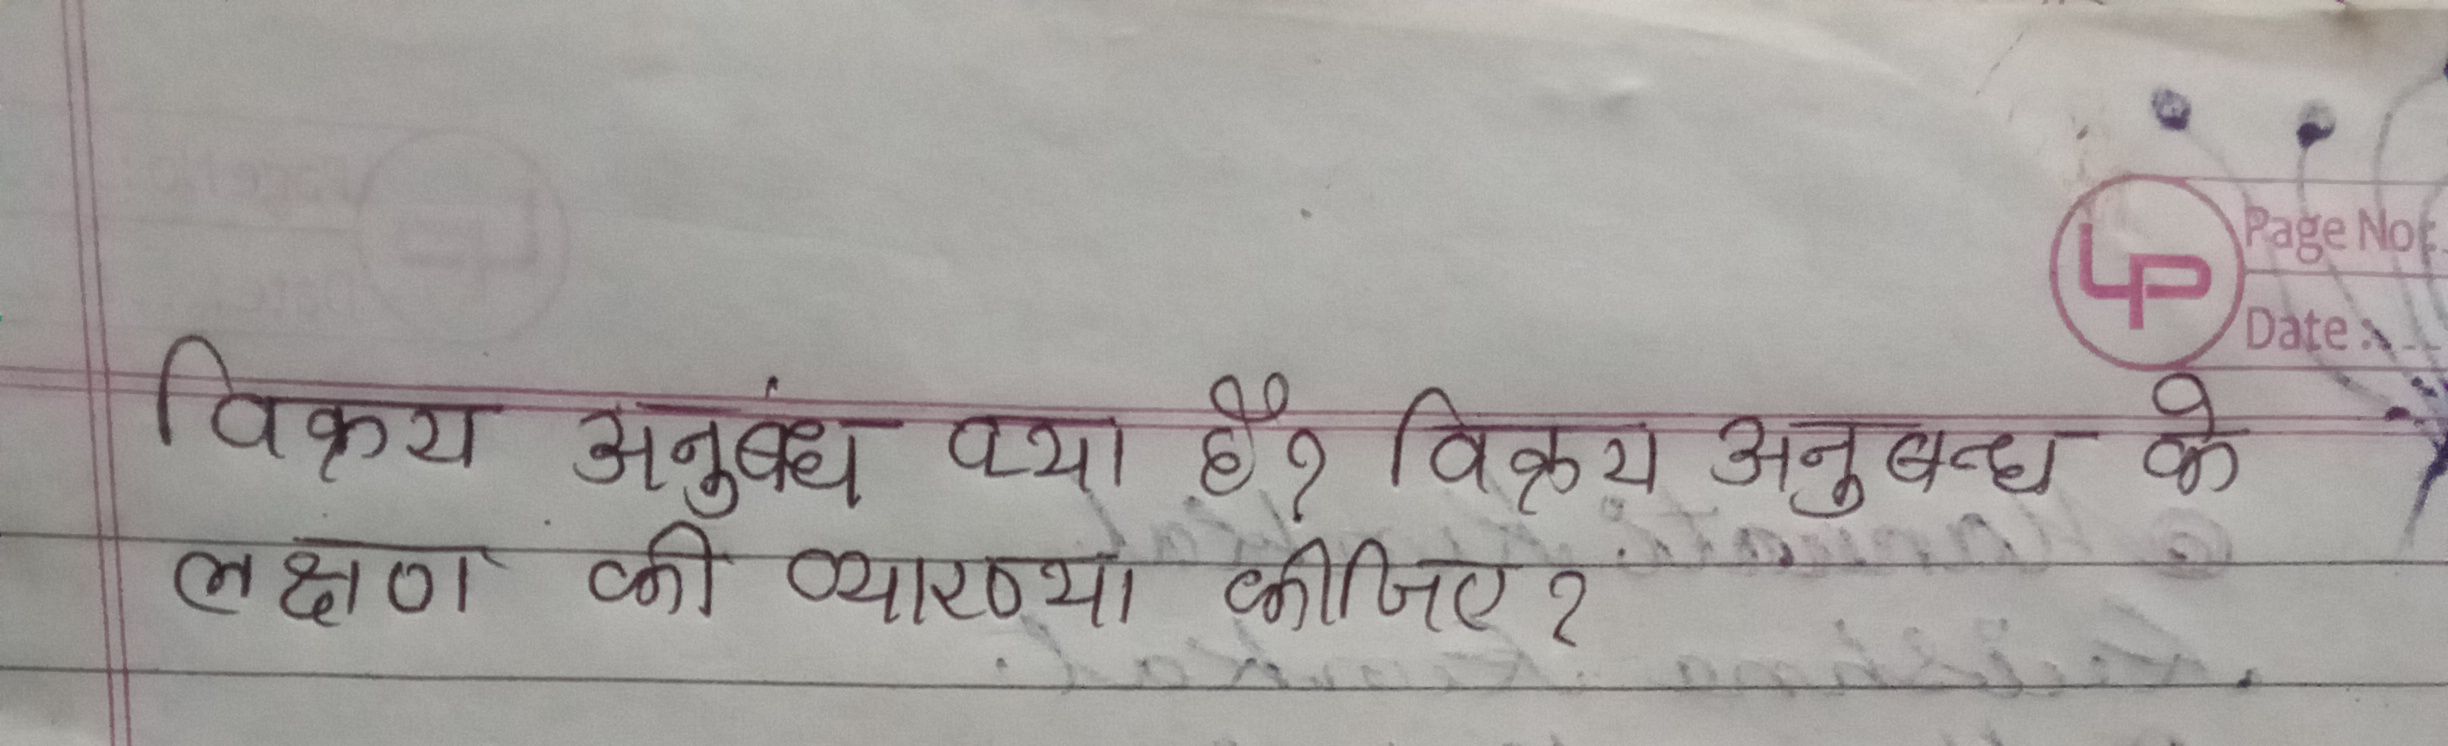 LP
Page No.
Date :
विक्रय अनुबंध क्या है? विक्रय अनुबन्ध के
लक्षण की व्याख्या कीजिए?